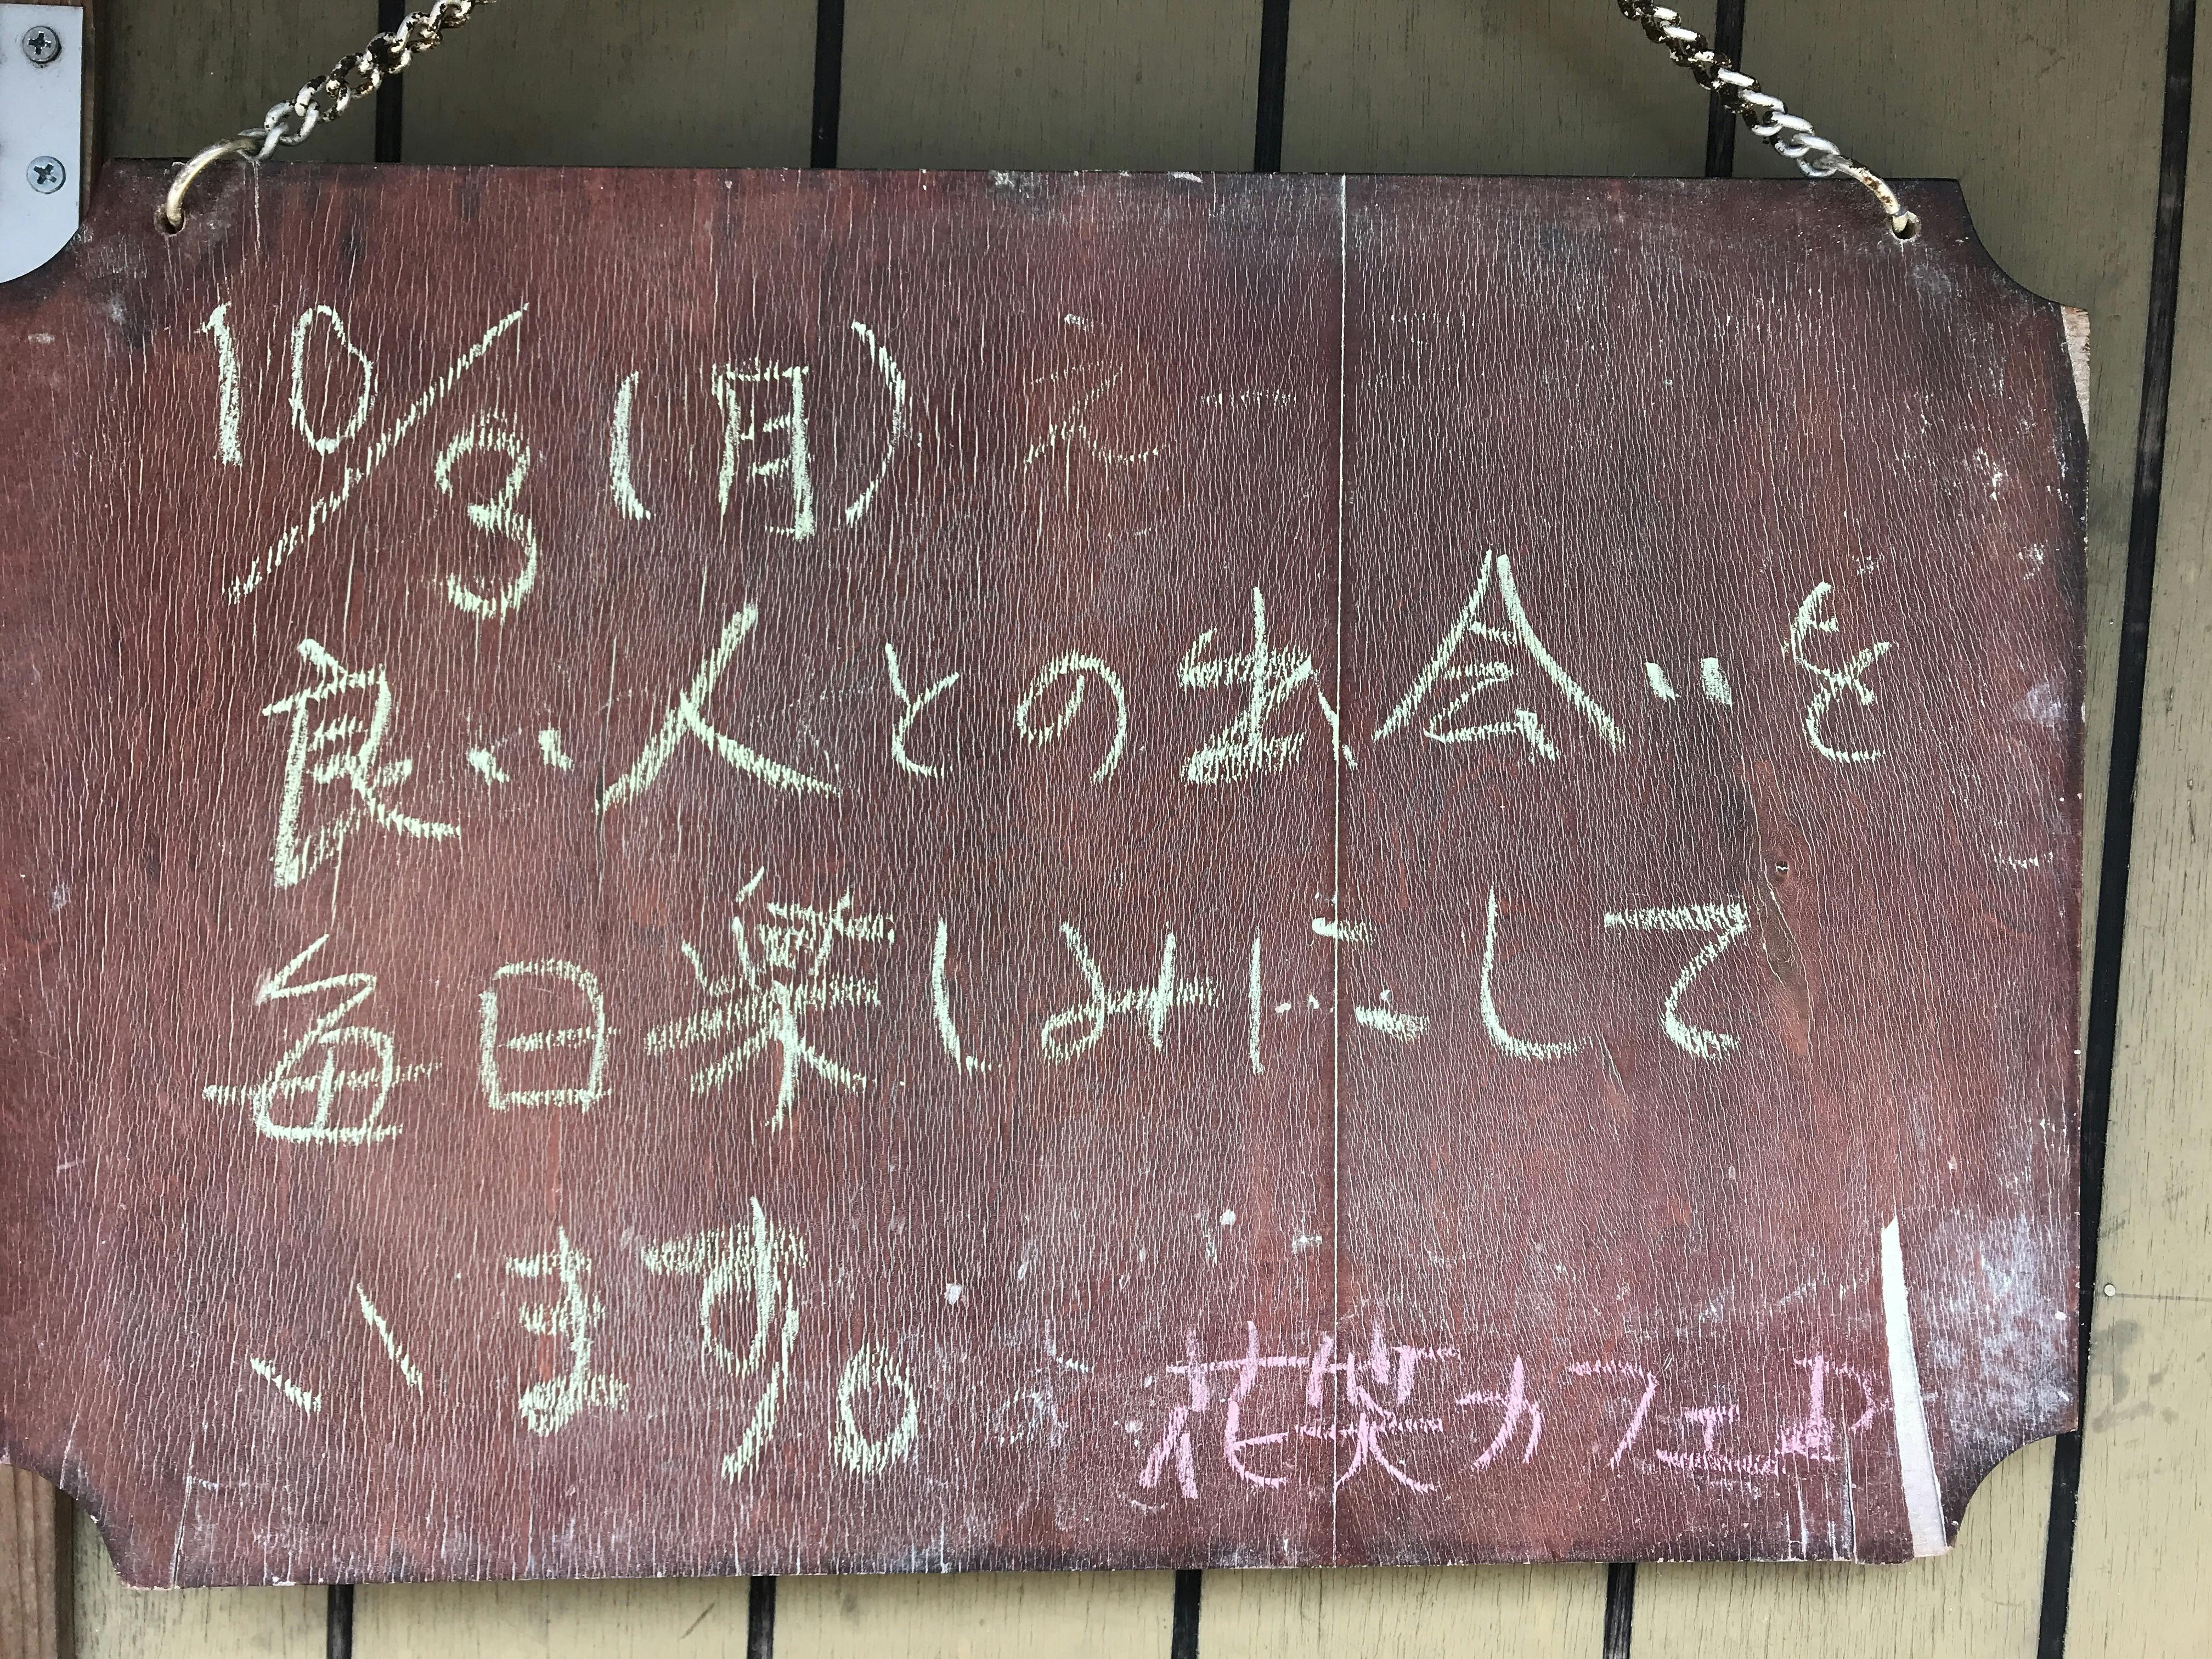 10/3(月)
良い人との出会いを
毎日楽しみにして
います。
花笑カフェ